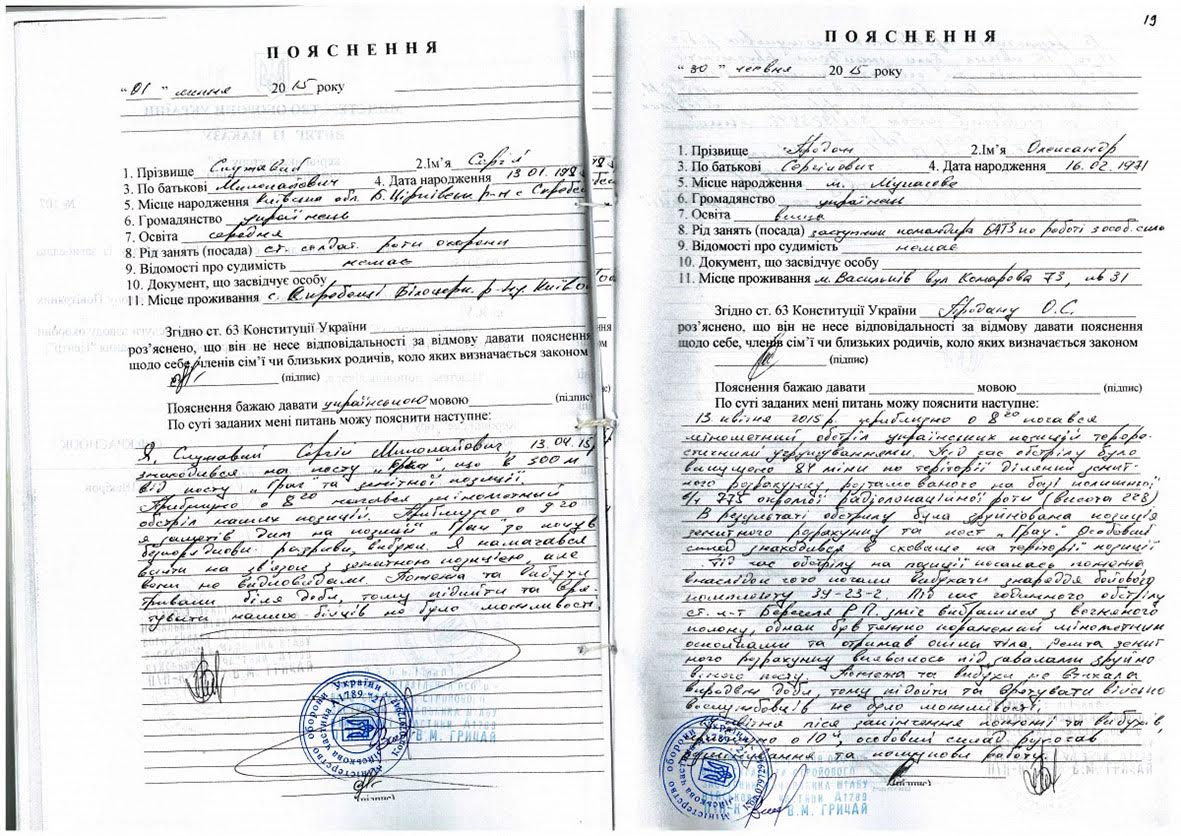 ПОЯСНЕННЯ
"01" липня 2015 року
1. Прізвище Служавий 2.Ім'я Сергій
3. По батькові Миколайович 4. Дата народження 13 01
5. Місце народження Київська обл. Б. Церківськ р-н с
6. Громадянство українець
7. Освіта середня
8. Рід занять (посада) ст. солдат роти охорони
9. Відомості про судимість немає
10. Документ, що засвідчує особу
11. Місце проживання с.
Згідно ст. 63 Конституції України
роз'яснено, що він не несе відповідальності за відмову давати пояснення
щодо себе, членів сім'ї чи близьких родичів, коло яких визначається законом
(підпис)
Пояснення бажаю давати українською мовою (підпис)
По суті заданих мені питань можу пояснити наступне:
Я, Служавий Сергій Миколайович 13.04.15
знаходився на посту що в 300 м
від посту "Грач" та зенітної позиції.
Приблизно о 8 20 почався мінометний
обстріл наших позицій. Приблизно о 9 20
я замітив дим на позиції "Грач" та почув
розриви, вибухи. Я намагався
вийти на зв'язок з зенітною позицією, але
вони не відповідали. Пожежа та вибухи
тривали біля доби, тому підійти та вря-
тувати наших бійців не було можливості.
Міністерство оборони України
Військова частина А1789
В.М. ГРИЦАЙ
(підпис)
19
ПОЯСНЕННЯ
"30" червня 2015 року
1. Прізвище Продан 2.Ім'я Олександр
3. По батькові Сергійович 4. Дата народження 16.02.1971
5. Місце народження м.
6. Громадянство українець
7. Освіта вища
8. Рід занять (посада) заступник командира БАТЗ по роботі з особ. склад
9. Відомості про судимість немає
10. Документ, що засвідчує особу
11. Місце проживання м. Васильків вул Комарова 73, 31
Згідно ст. 63 Конституції України Продану О.С.
роз'яснено, що він не несе відповідальності за відмову давати пояснення
щодо себе, членів сім'ї чи близьких родичів, коло яких визначається законом
(підпис)
Пояснення бажаю давати мовою (підпис)
По суті заданих мені питань можу пояснити наступне:
13 квітня 2015 р. приблизно о 8 20 почався
мінометний обстріл українських позицій терори-
стичними угрупуваннями. Під час обстрілу було
випущено 84 міни по території ділянки зеніт-
ного розрахунку розташованого на базі колишньої
в/ч 775 окремої радіолокаційної роти (висота 228)
В результаті обстрілу була зруйнована позиція
зенітного розрахунку та пост "Грач". Особовий
склад знаходився в сховищі на території позиції
Під час обстрілу на позиції почалась пожежа
внаслідок чого почали вибухати снаряди бойового
комплекту ЗУ-23-2. Під час годинного обстрілу
ст. л-т Березля Р.П. зміг вибратися з вогненого
полону, однак був тяжко поранений мінометними
осколками та отримав опіки тіла. Решта зеніт
ного розрахунку виявилось під завалами зруйно
ваного посту. Пожежа та вибухи не втихала
впродовж доби, тому підійти та врятувати військо
вослужбовців не було можливості.
квітня після закінчення пожежі та вибухів,
о 10 особовий склад розпочав
та пошукові роботи.
(підпис)
Міністерство оборони України
ШТАБУ
А1789
В.М. ГРИЦАЙ